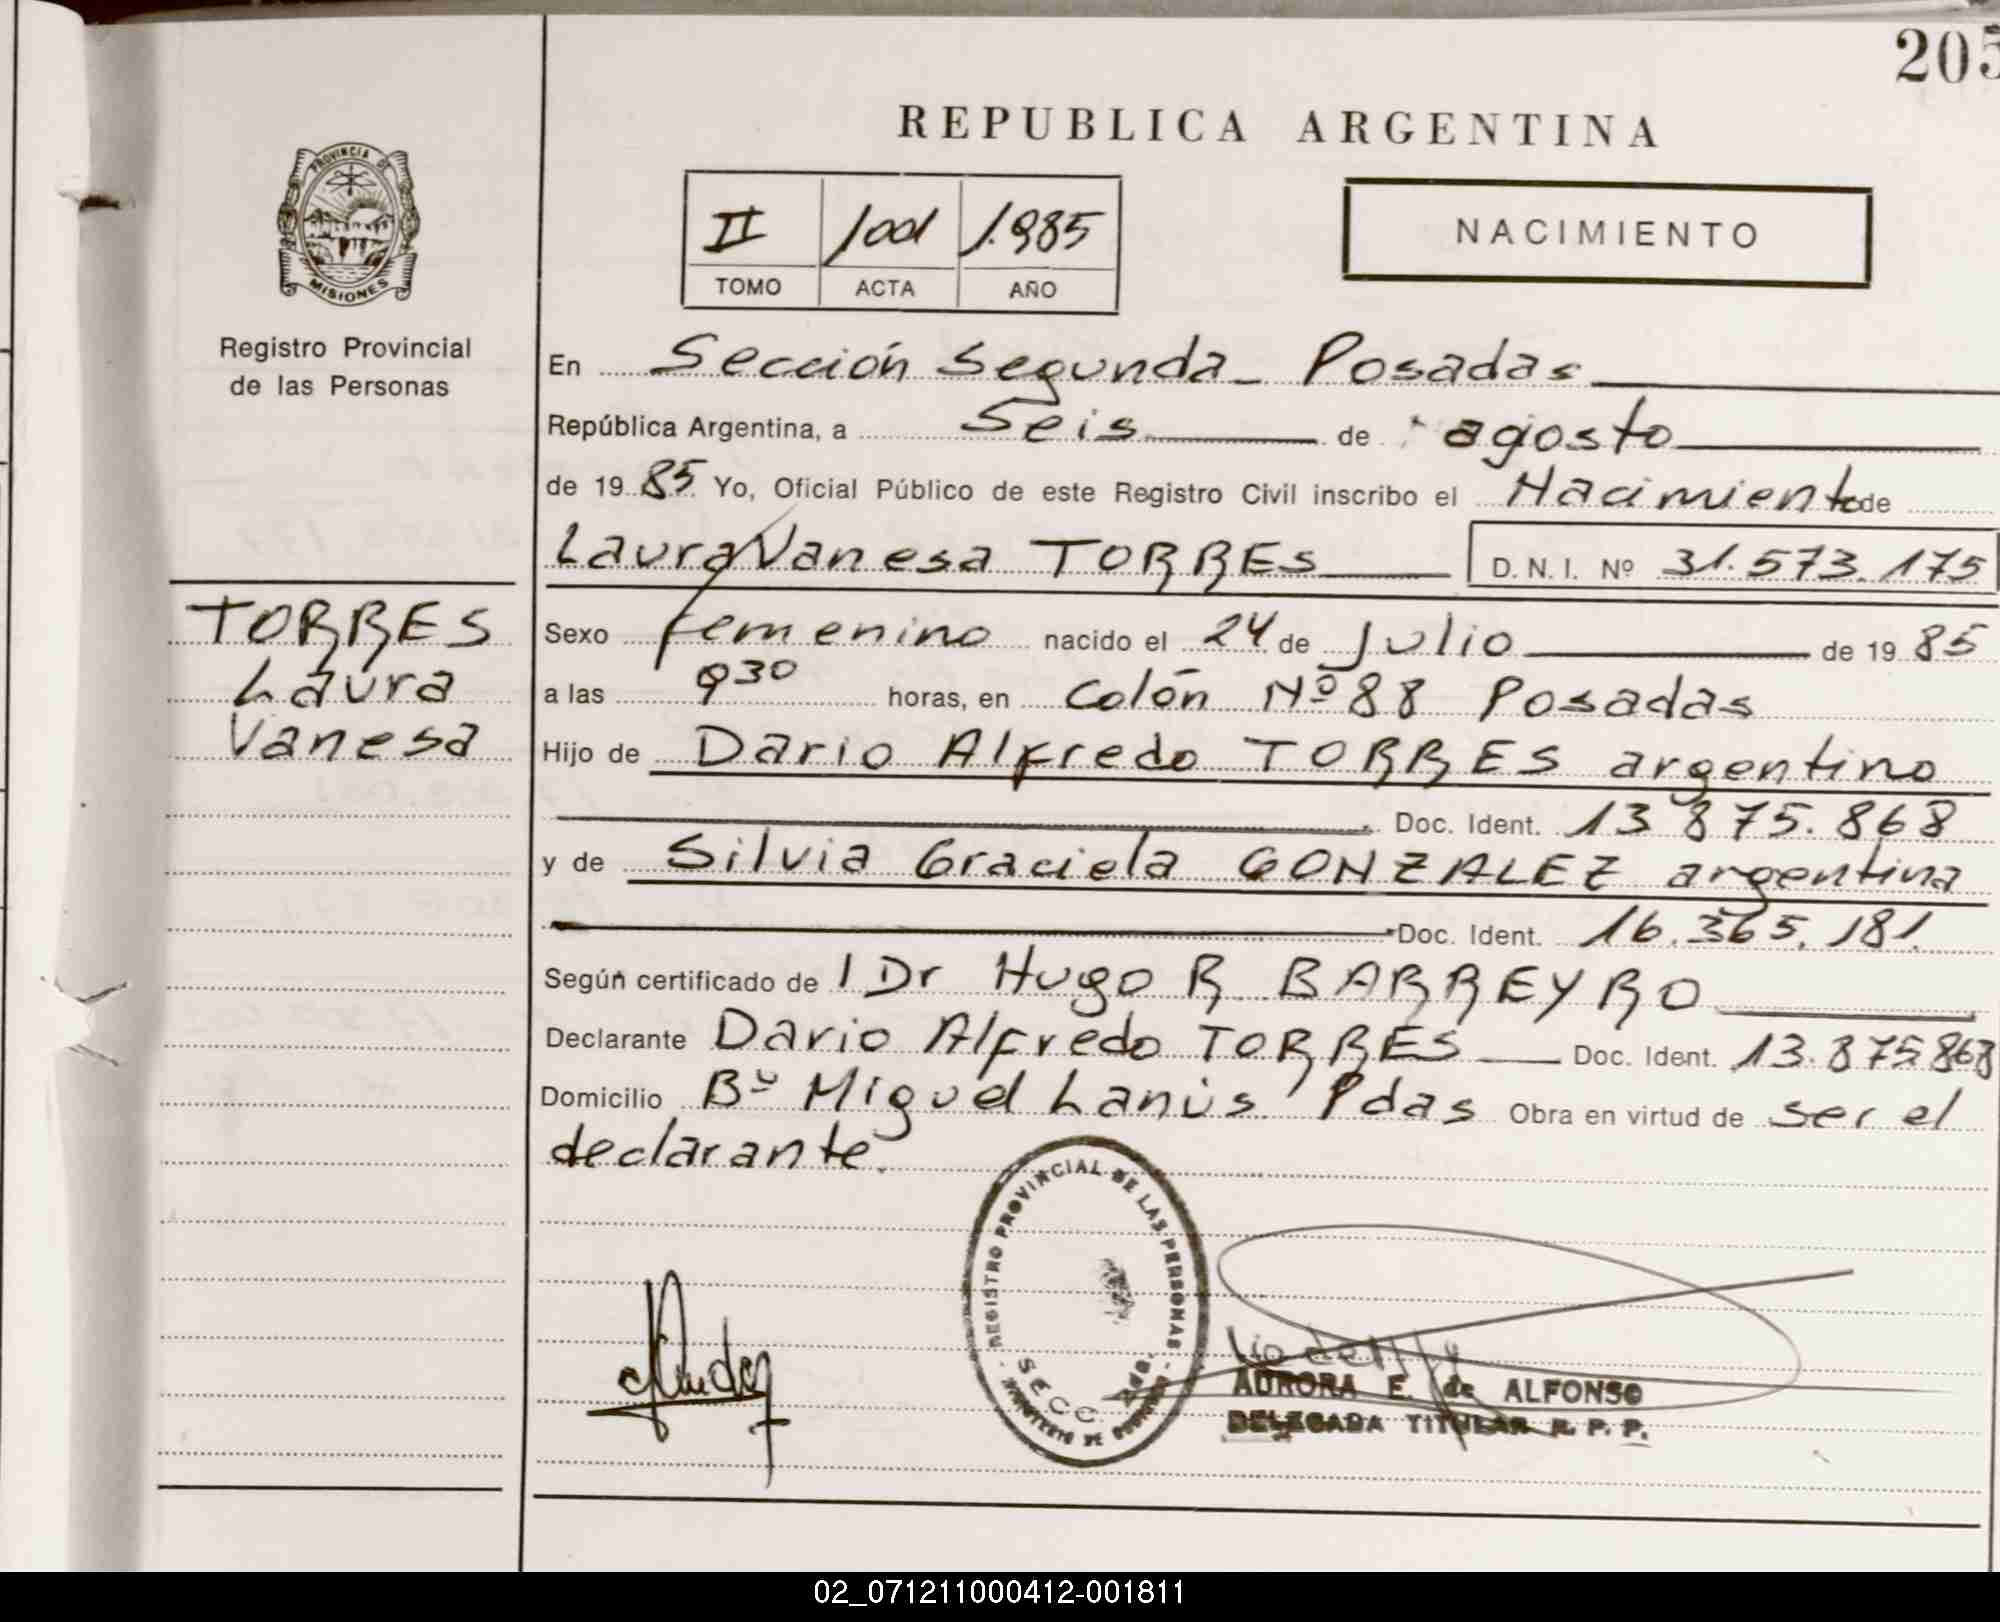 205
REPUBLICA ARGENTINA
PROVINCIA DE
MISIONES
II 1001 1.985
TOMO ACTA AÑO
NACIMIENTO
Registro Provincial
de las Personas
En Sección Segunda - Posadas
República Argentina, a Seis de agosto
de 19 85 Yo, Oficial Público de este Registro Civil inscribo el Nacimiento de
Laura Vanesa TORRES D. N. I. Nº 31.573.175
TORRES
Laura
Vanesa
Sexo femenino nacido el 24 de Julio de 19 85
a las 9 30 horas, en Colón Nº 88 Posadas
Hijo de Dario Alfredo TORRES argentino
Doc. Ident. 13 875.868
y de Silvia Graciela GONZALEZ argentina
Doc. Ident. 16.365.181.
Según certificado de l Dr Hugo R BARREYRO
Declarante Dario Alfredo TORRES Doc. Ident. 13.875868
Domicilio Bº Miguel Lanús Pdas Obra en virtud de ser el
declarante.
REGISTRO PROVINCIAL DE LAS PERSONAS
MINISTERIO DE GOBIERNO
SECC. 2da.
AURORA E. de ALFONSO
DELEGADA TITULAR R. P. P.
02_071211000412-001811